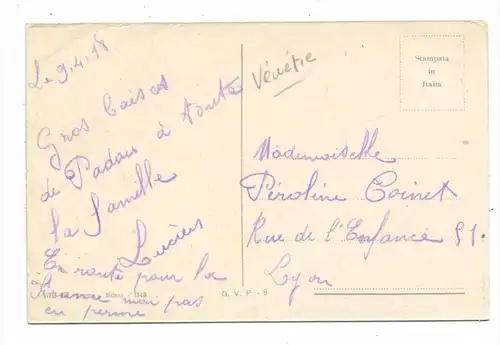 Le 9.4.18
Gros baises
de Padou à toute
la famille
Lucien
En route pour la
France moi pas
en perme
Vénétie
Stampata
in
Italia
Mademoiselle
Péroline Coinet
Rue de l'Enfance 51.
Lyon
G. V. P - 8